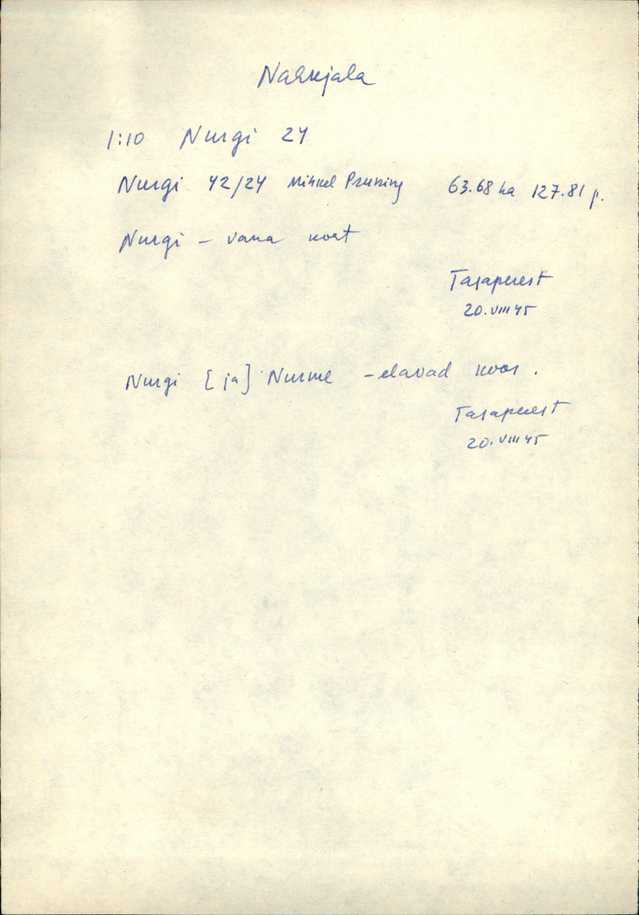 Nahkjala
1:10 Nurgi 24
Nurgi 42/24 Mihkel Pruning 63.68 ha 127.81 r.
Nurgi – vana koht
Tasaperest
20.VIII 45
Nurgi [ja] Nurme – elavad koos.
Tasaperest
20.VIII 45